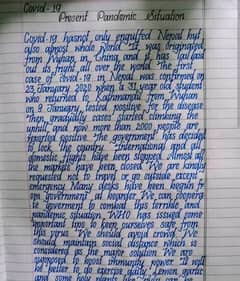 Covid-19
Present Pandemic Situation
Covid-19 has not only engulfed Nepal but
also almost whole world. It was originated
from Wuhan, in China, and it has laid
out its fright all over the world. The first
case of covid-19 in Nepal was confirmed on
23 January 2020 when a 31 year old student
who returned to Kathmandu from Wuhan
on 9 January, tested positive for the disease
Then gradually cases started climbing the
uphill and now more than 2000 people are
reported positive. The government has decided
to lock the country. International and all
domestic flights have been stopped. Almost all
the markets have been closed. We are kindly
requested not to travel or go outside except
emergency. Many desks have been begun for
government all together. We can cooperate
to government to combat this terrible and
pandemic situation. WHO has issued some
important tips to keep ourselves safe from
this virus. We should avoid crowd. We
should maintain social distance which is
considered as the major solution. We are
supposed to boost immunity power. It will
be better to do exercise daily. Lemon, garlic
and some hot